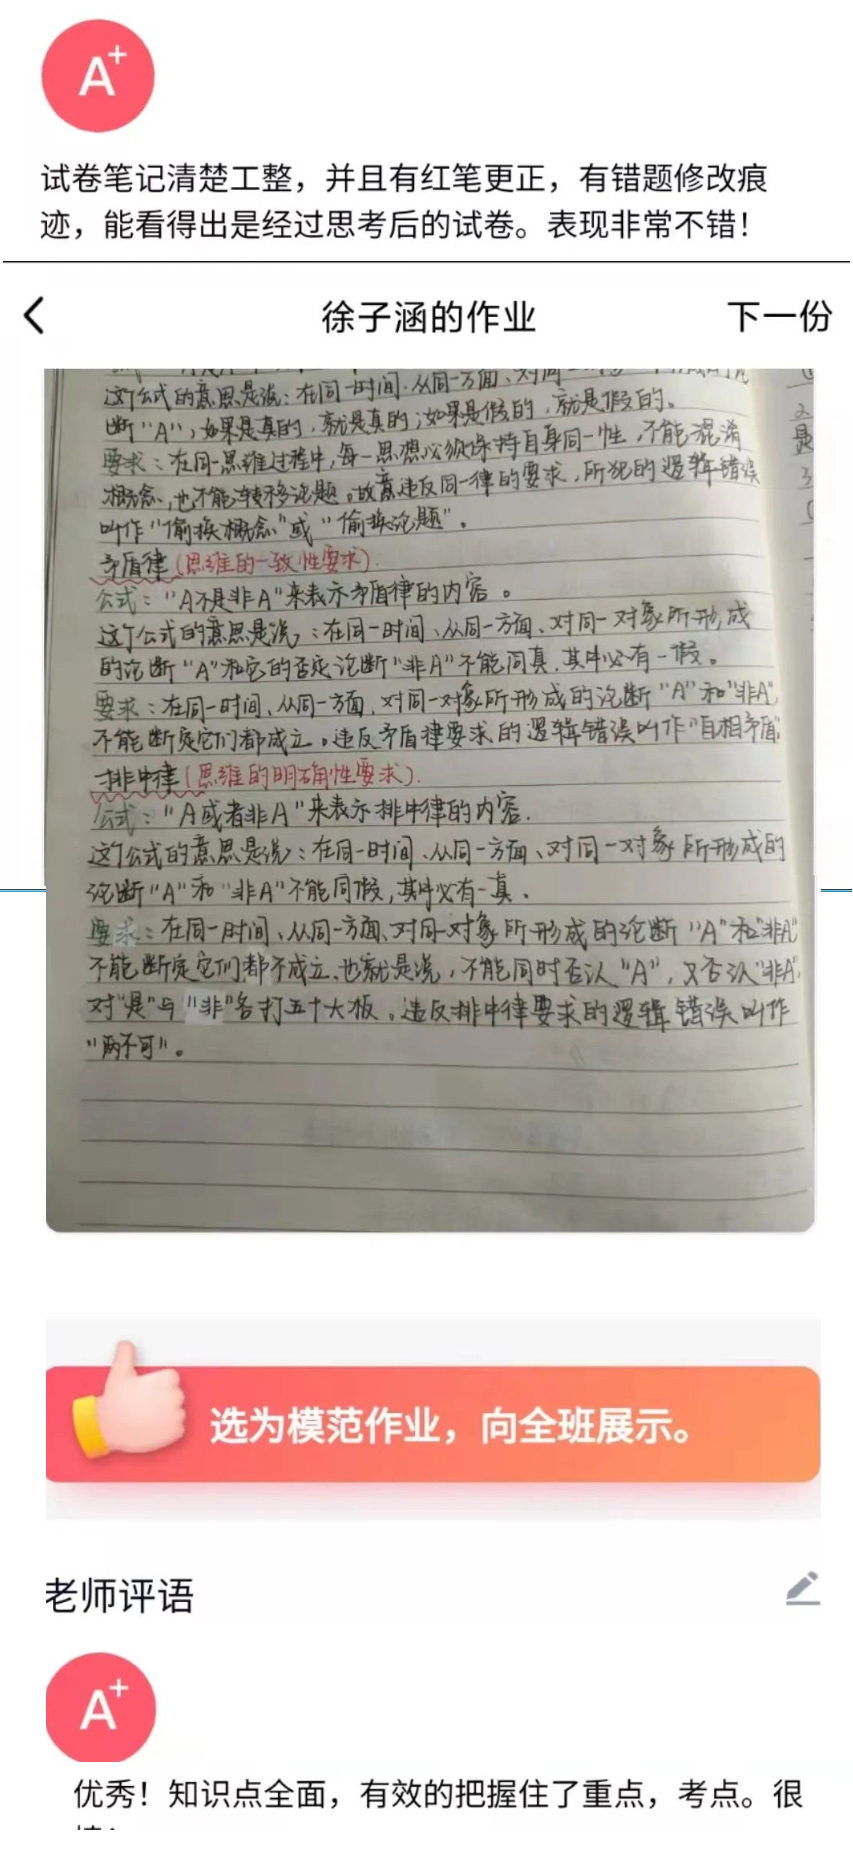 A+
试卷笔记清楚工整，并且有红笔更正，有错题修改痕
迹，能看得出是经过思考后的试卷。表现非常不错！
徐子涵的作业
下一份
这个公式的意思是说：在同一时间、从同一方面、对同一
断"A"，如果是真的，就是真的；如果是假的，就是假的。
要求：在同一思维过程中，每一思想必须保持自身同一性，不能混淆
概念，也不能转移论题。故意违反同一律的要求，所犯的逻辑错误
叫作"偷换概念"或"偷换论题"。
矛盾律(思维的一致性要求).
公式："A不是非A"来表示矛盾律的内容。
这个公式的意思是说：在同一时间、从同一方面、对同一对象所形成
的论断"A"和它的否定论断"非A"不能同真，其中必有一假。
要求：在同一时间、从同一方面、对同一对象所形成的论断"A"和"非A"
不能断定它们都成立。违反矛盾律要求的逻辑错误叫作"自相矛盾"
排中律(思维的明确性要求).
公式："A或者非A"来表示排中律的内容.
这个公式的意思是说：在同一时间、从同一方面、对同一对象所形成的
论断"A"和"非A"不能同假，其中必有一真.
要求：在同一时间、从同一方面、对同一对象所形成的论断"A"和"非A"
不能断定它们都不成立.也就是说，不能同时否认"A"，又否认"非A"
对"是"与"非"各打五十大板。违反排中律要求的逻辑错误叫作
"两不可"。
选为模范作业，向全班展示。
老师评语
A+
优秀！知识点全面，有效的把握住了重点，考点。很